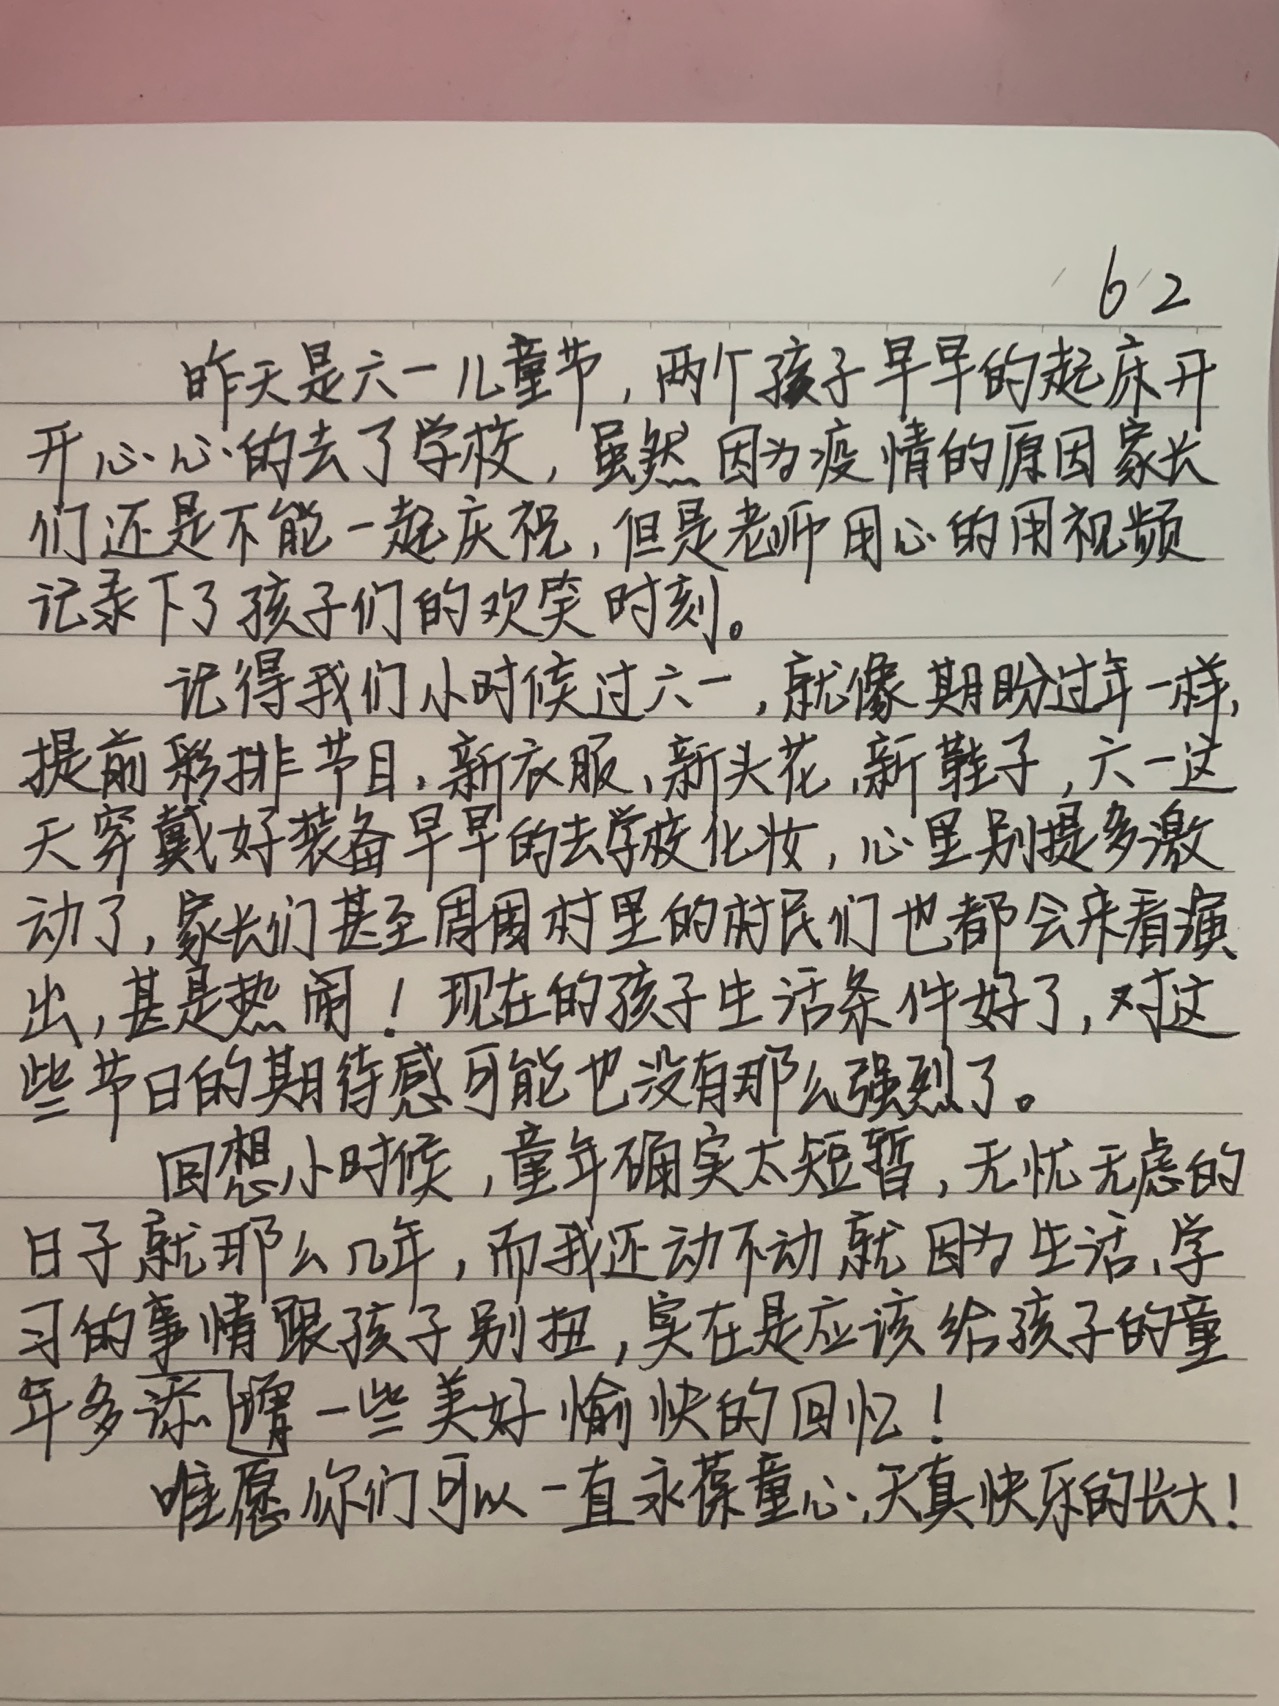 6 2
昨天是六一儿童节,两个孩子早早的起床开
开心心的去了学校,虽然因为疫情的原因家长
们还是不能一起庆祝,但是老师用心的用视频
记录下了孩子们的欢笑时刻。
记得我们小时候过六一,就像期盼过年一样,
提前彩排节目、新衣服、新头花、新鞋子,六一这
天穿戴好装备早早的去学校化妆,心里别提多激
动了,家长们甚至周围村里的村民们也都会来看演
出,甚是热闹!现在的孩子生活条件好了,对这
些节日的期待感可能也没有那么强烈了。
回想小时候,童年确实太短暂,无忧无虑的
日子就那么几年,而我还动不动就因为生活、学
习的事情跟孩子别扭,实在是应该给孩子的童
年多添增一些美好愉快的回忆!
唯愿你们可以一直永葆童心、天真快乐的长大!